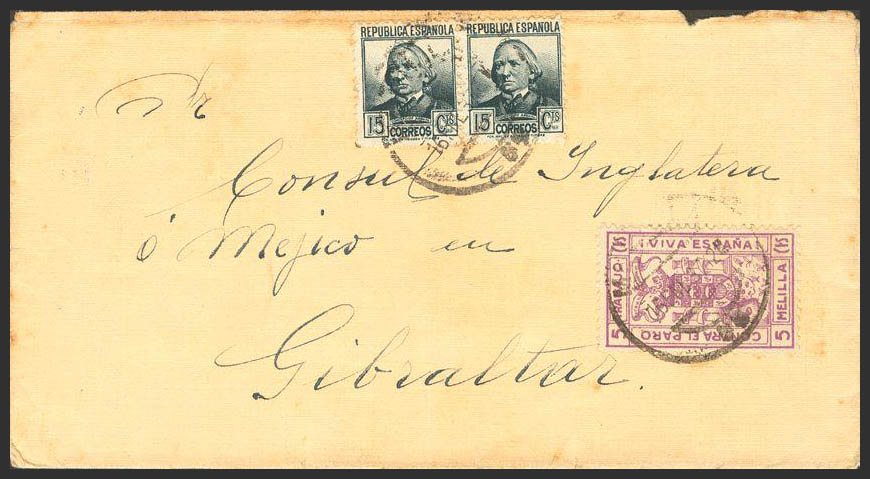 REPUBLICA ESPAÑOLA REPUBLICA ESPAÑOLA
15 CORREOS Cts 15 CORREOS Cts
Sr
Consul de Inglatera
ó Mejico en
Gibraltar.
¡VIVA ESPAÑA!
TRABAJO
MELILLA
5 CONTRA EL PARO 5